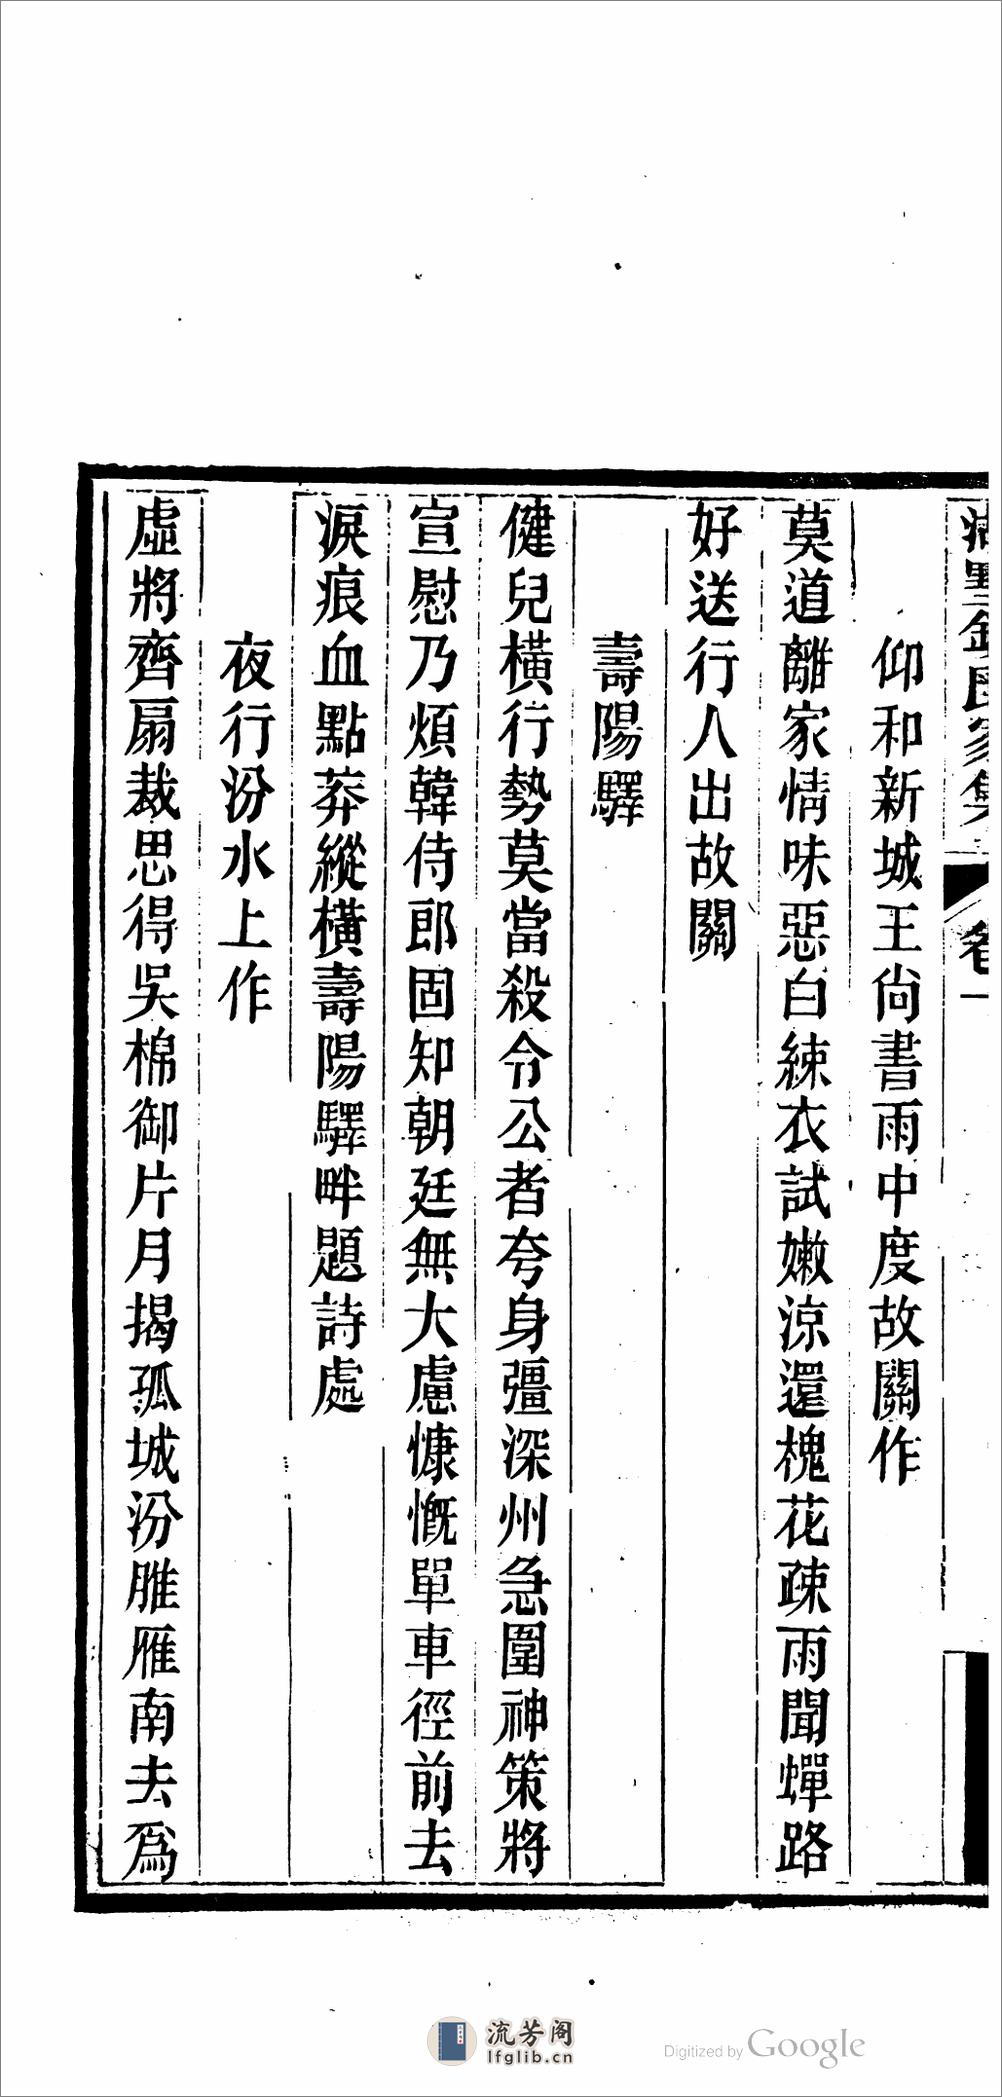 仰和新城王尚書雨中度故關作
莫道離家情味惡白練衣試嫩涼還槐花疎雨聞蟬路
好送行人出故關
壽陽驛
健兒橫行勢莫當殺令公者夸身彊深州急圍神策將
宣慰乃煩韓侍郎固知朝廷無大慮慷慨單車徑前去
淚痕血點莽縱橫壽陽驛畔題詩處
夜行汾水上作
虛將齊扇裁思得吳棉御片月揭孤城汾脽雁南去爲
流芳阁
lfglib.cn
Digitized by Google